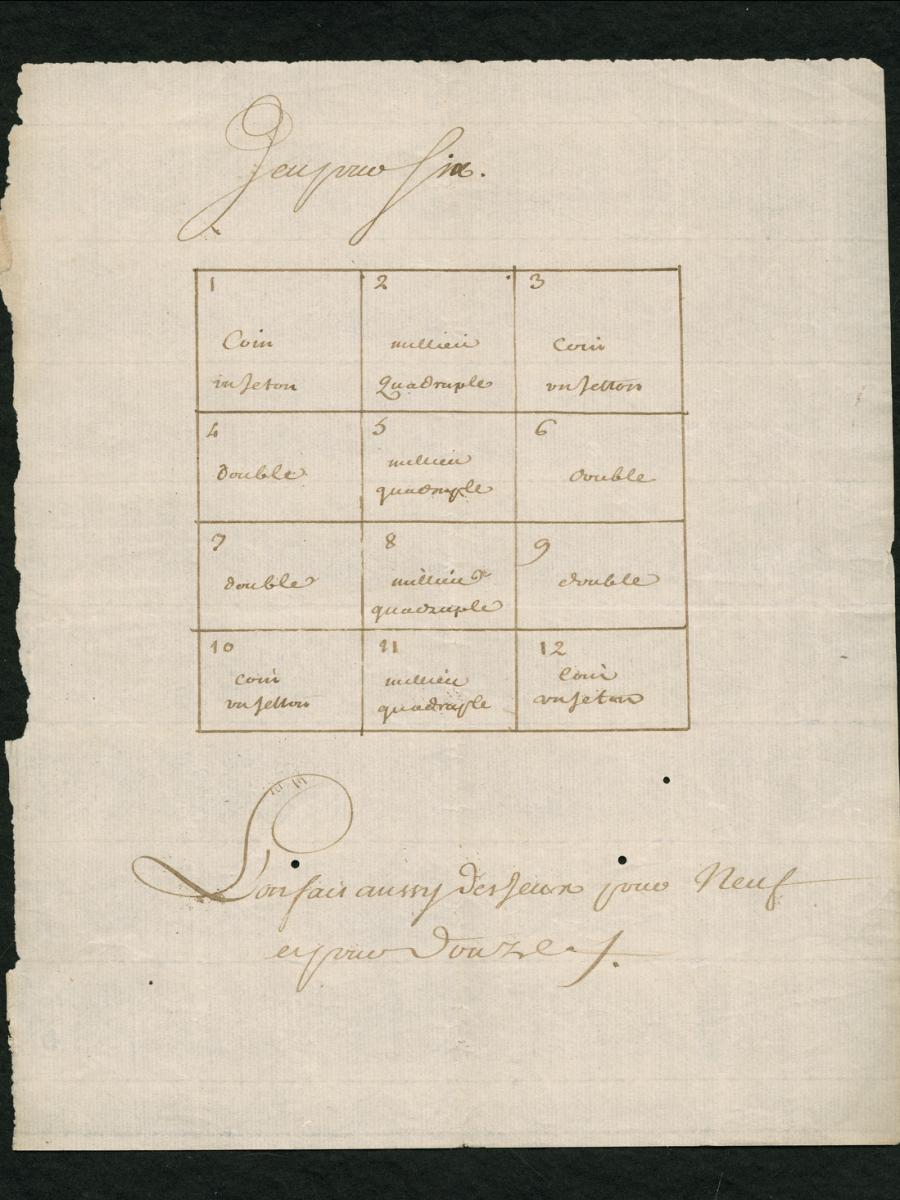 Jeu pour Six.
1
Coin
un Jeton
2
millieu
Quadruple
3
Coin
vn Jetton
4
double
5
millieu
quadruple
6
double
7
double
8
millieu
quadruple
9
double
10
coin
vn Jetton
11
millieu
quadruple
12
Coin
vn Jeton
L'on fait aussy des Jeux pour Neuf
et pour Douze